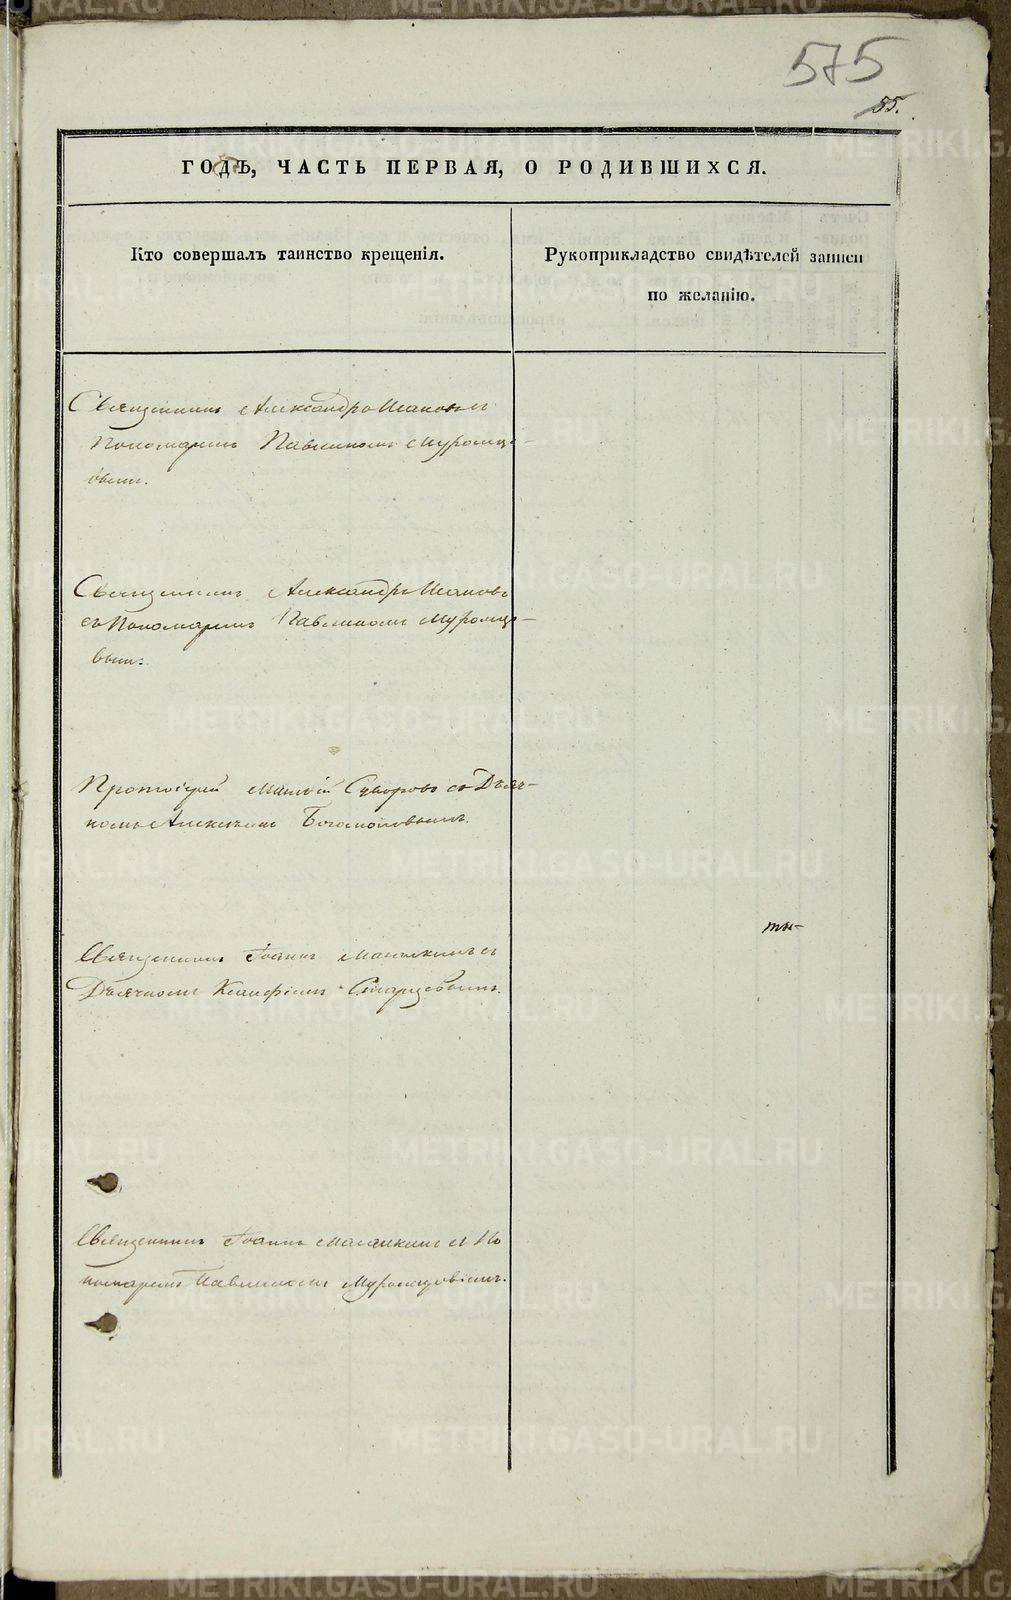 575
55.
ГОДЪ, ЧАСТЬ ПЕРВАЯ, О РОДИВШИХСЯ.
Кто совершалъ таинство крещенія.
Рукоприкладство свидѣтелей записи
по желанію.
Священникъ Александръ Ивановъ съ
Пономаремъ Павлиномъ Муромцо-
вымъ.
Священникъ Александръ Ивановъ
съ Пономаремъ Павлиномъ Муромцо-
вымъ.
Протоіерей Суворовъ съ Дьяч-
комъ Алексѣемъ Богомоловымъ.
ты-
Священникъ Іоаннъ съ
Дьячкомъ Старцовымъ.
Священникъ Іоаннъ По
номаремъ Павлиномъ Муромцовымъ.
METRIKI.GASO-URAL.RU